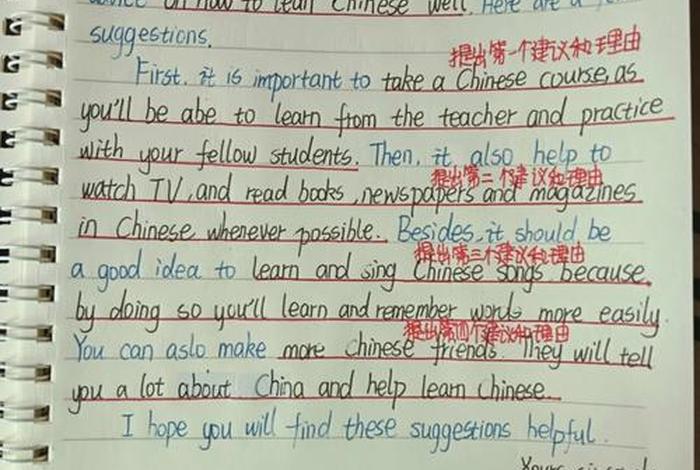 advice on how to lean Chinese well. Here are a
suggestions.
提出第一个建议和理由
First, it is important to take a Chinese course, as
you'll be abe to learn from the teacher and practice
with your fellow students. Then, it also help to
提出第二个建议和理由
watch TV, and read books, newspapers and magazines
in Chinese whenever possible. Besides, it should be
提出第三个建议和理由
a good idea to learn and sing Chinese songs because,
by doing so you'll learn and remember words more easily.
提出第四个建议和理由
You can aslo make more chinese friends. They will tell
you a lot about China and help learn Chinese.
I hope you will find these suggestions helpful.
Yours